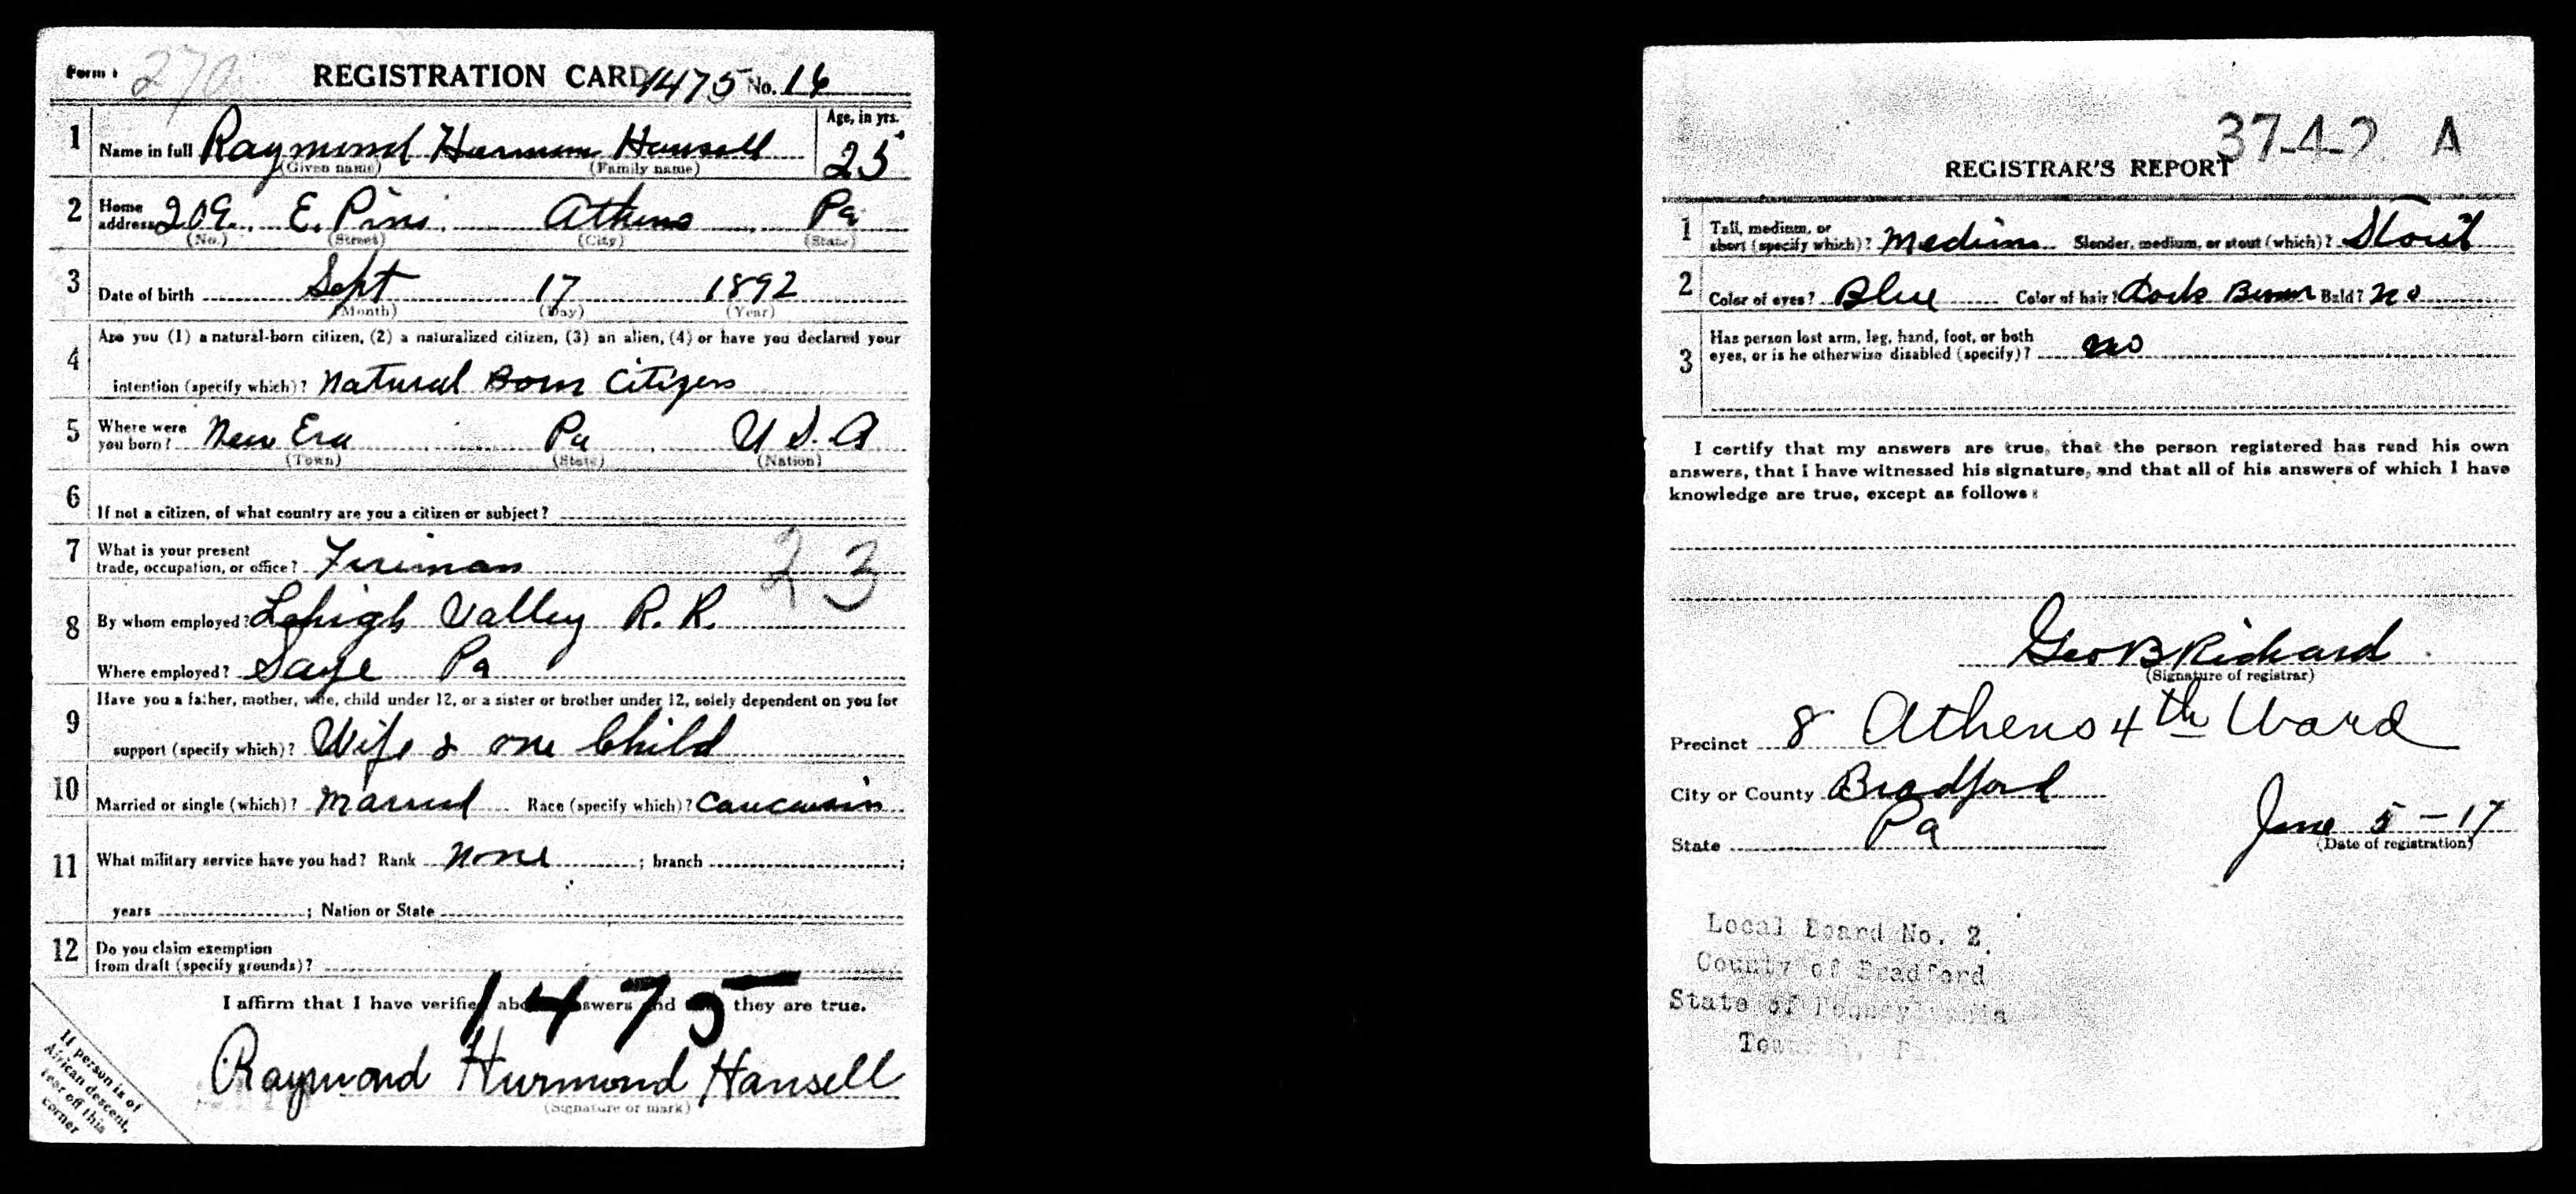 Form 1 270 REGISTRATION CARD 1475 No. 16
1 Name in full Raymond Hurman Hansell Age, in yrs. 25
(Given name) (Family name)
2 Home address 209 E. Pine Athens Pa
(No.) (Street) (City) (State)
3 Date of birth Sept 17 1892
(Month) (Day) (Year)
4 Are you (1) a natural-born citizen, (2) a naturalized citizen, (3) an alien, (4) or have you declared your
intention (specify which)? Natural Born Citizen
5 Where were you born? New Era Pa U.S.A
(Town) (State) (Nation)
6 If not a citizen, of what country are you a citizen or subject?
7 What is your present trade, occupation, or office? Fireman 23
8 By whom employed? Lehigh Valley R. R.
Where employed? Sayre Pa
9 Have you a father, mother, wife, child under 12, or a sister or brother under 12, solely dependent on you for
support (specify which)? Wife & one Child
10 Married or single (which)? Married Race (specify which)? Caucasian
11 What military service have you had? Rank None ; branch ;
years ; Nation or State
12 Do you claim exemption
from draft (specify grounds)?
I affirm that I have verified above answers and they are true.
1475
Raymond Hurmond Hansell
(Signature or mark)
If person is of
African descent,
tear off this
corner
37-4-2 A
REGISTRAR'S REPORT
1 Tall, medium, or short (specify which)? Medium Slender, medium, or stout (which)? Stout
2 Color of eyes? Blue Color of hair? Dark Brown Bald? No
3 Has person lost arm, leg, hand, foot, or both
eyes, or is he otherwise disabled (specify)? No
I certify that my answers are true, that the person registered has read his own
answers, that I have witnessed his signature, and that all of his answers of which I have
knowledge are true, except as follows:
Geo B Richard
(Signature of registrar)
Precinct 8 Athens 4th Ward
City or County Bradford
State Pa June 5-17
(Date of registration)
Local Board No. 2
County of Bradford
State of Pennsylvania